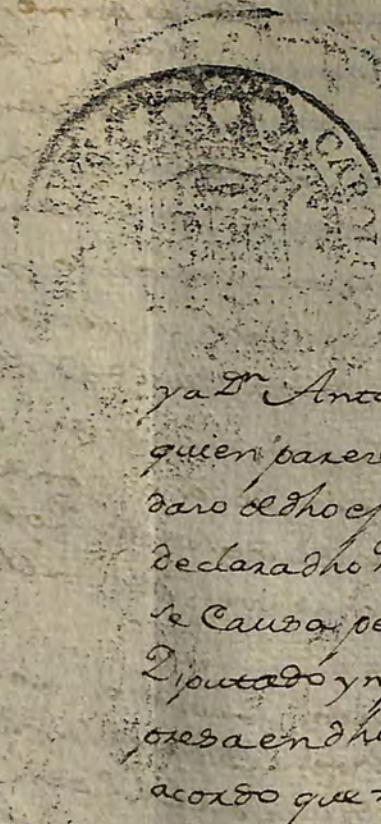 CAROLU
ya Dn Anto
quien parere
daro el dho esp
declaradho
se Causa pe
Diputado y n
presa en dh
acordo que